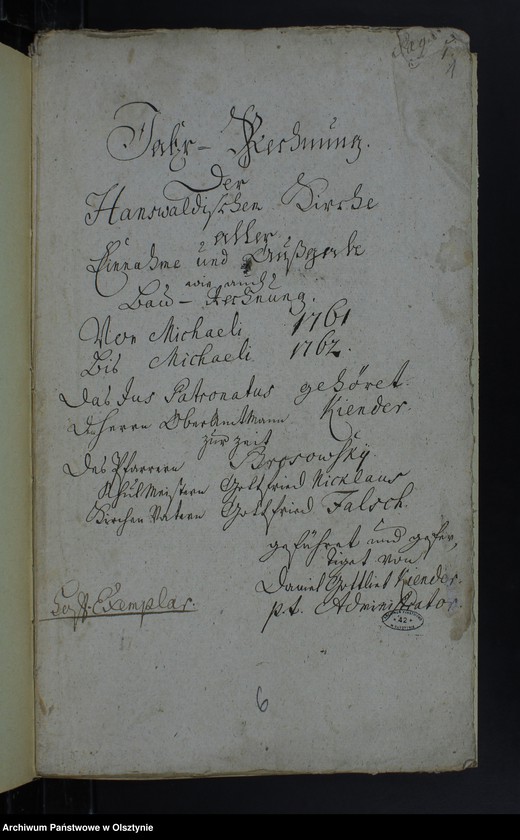 Pag: 1
Jahr-Rechnung.
Der
Hanswaldischen Kirche
aller
Einnahme und Außgabe
wie auch
Bau-Rechnung.
Von Michaeli 1761
Bis Michaeli 1762.
Das Jus Patronatus gehöret
Herrn OberAmtMann Kiender.
zur Zeit
Des Pfarrern Bresowsky.
SchulMeistern Gottfried Nicklaus
Kirchen Vatern Gottfried Falsch.
geführet und gefer,
tiget von
Daniel Gottlieb Kiender.
p.t. Administrator.
Exemplar.
42
6
Archiwum Państwowe w Olsztynie